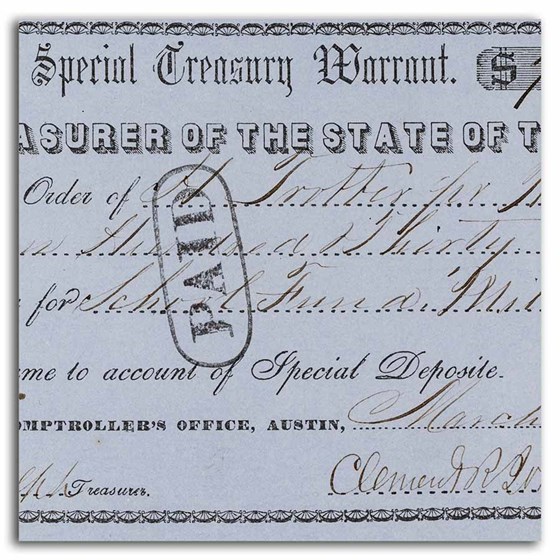 Special Treasury Warrant. $
ASURER OF THE STATE OF T
Order of Trotter for
Hundred & Thirty
for School Fund
me to account of Special Deposite.
OMPTROLLER'S OFFICE, AUSTIN, March
Treasurer. Clement R
PAID